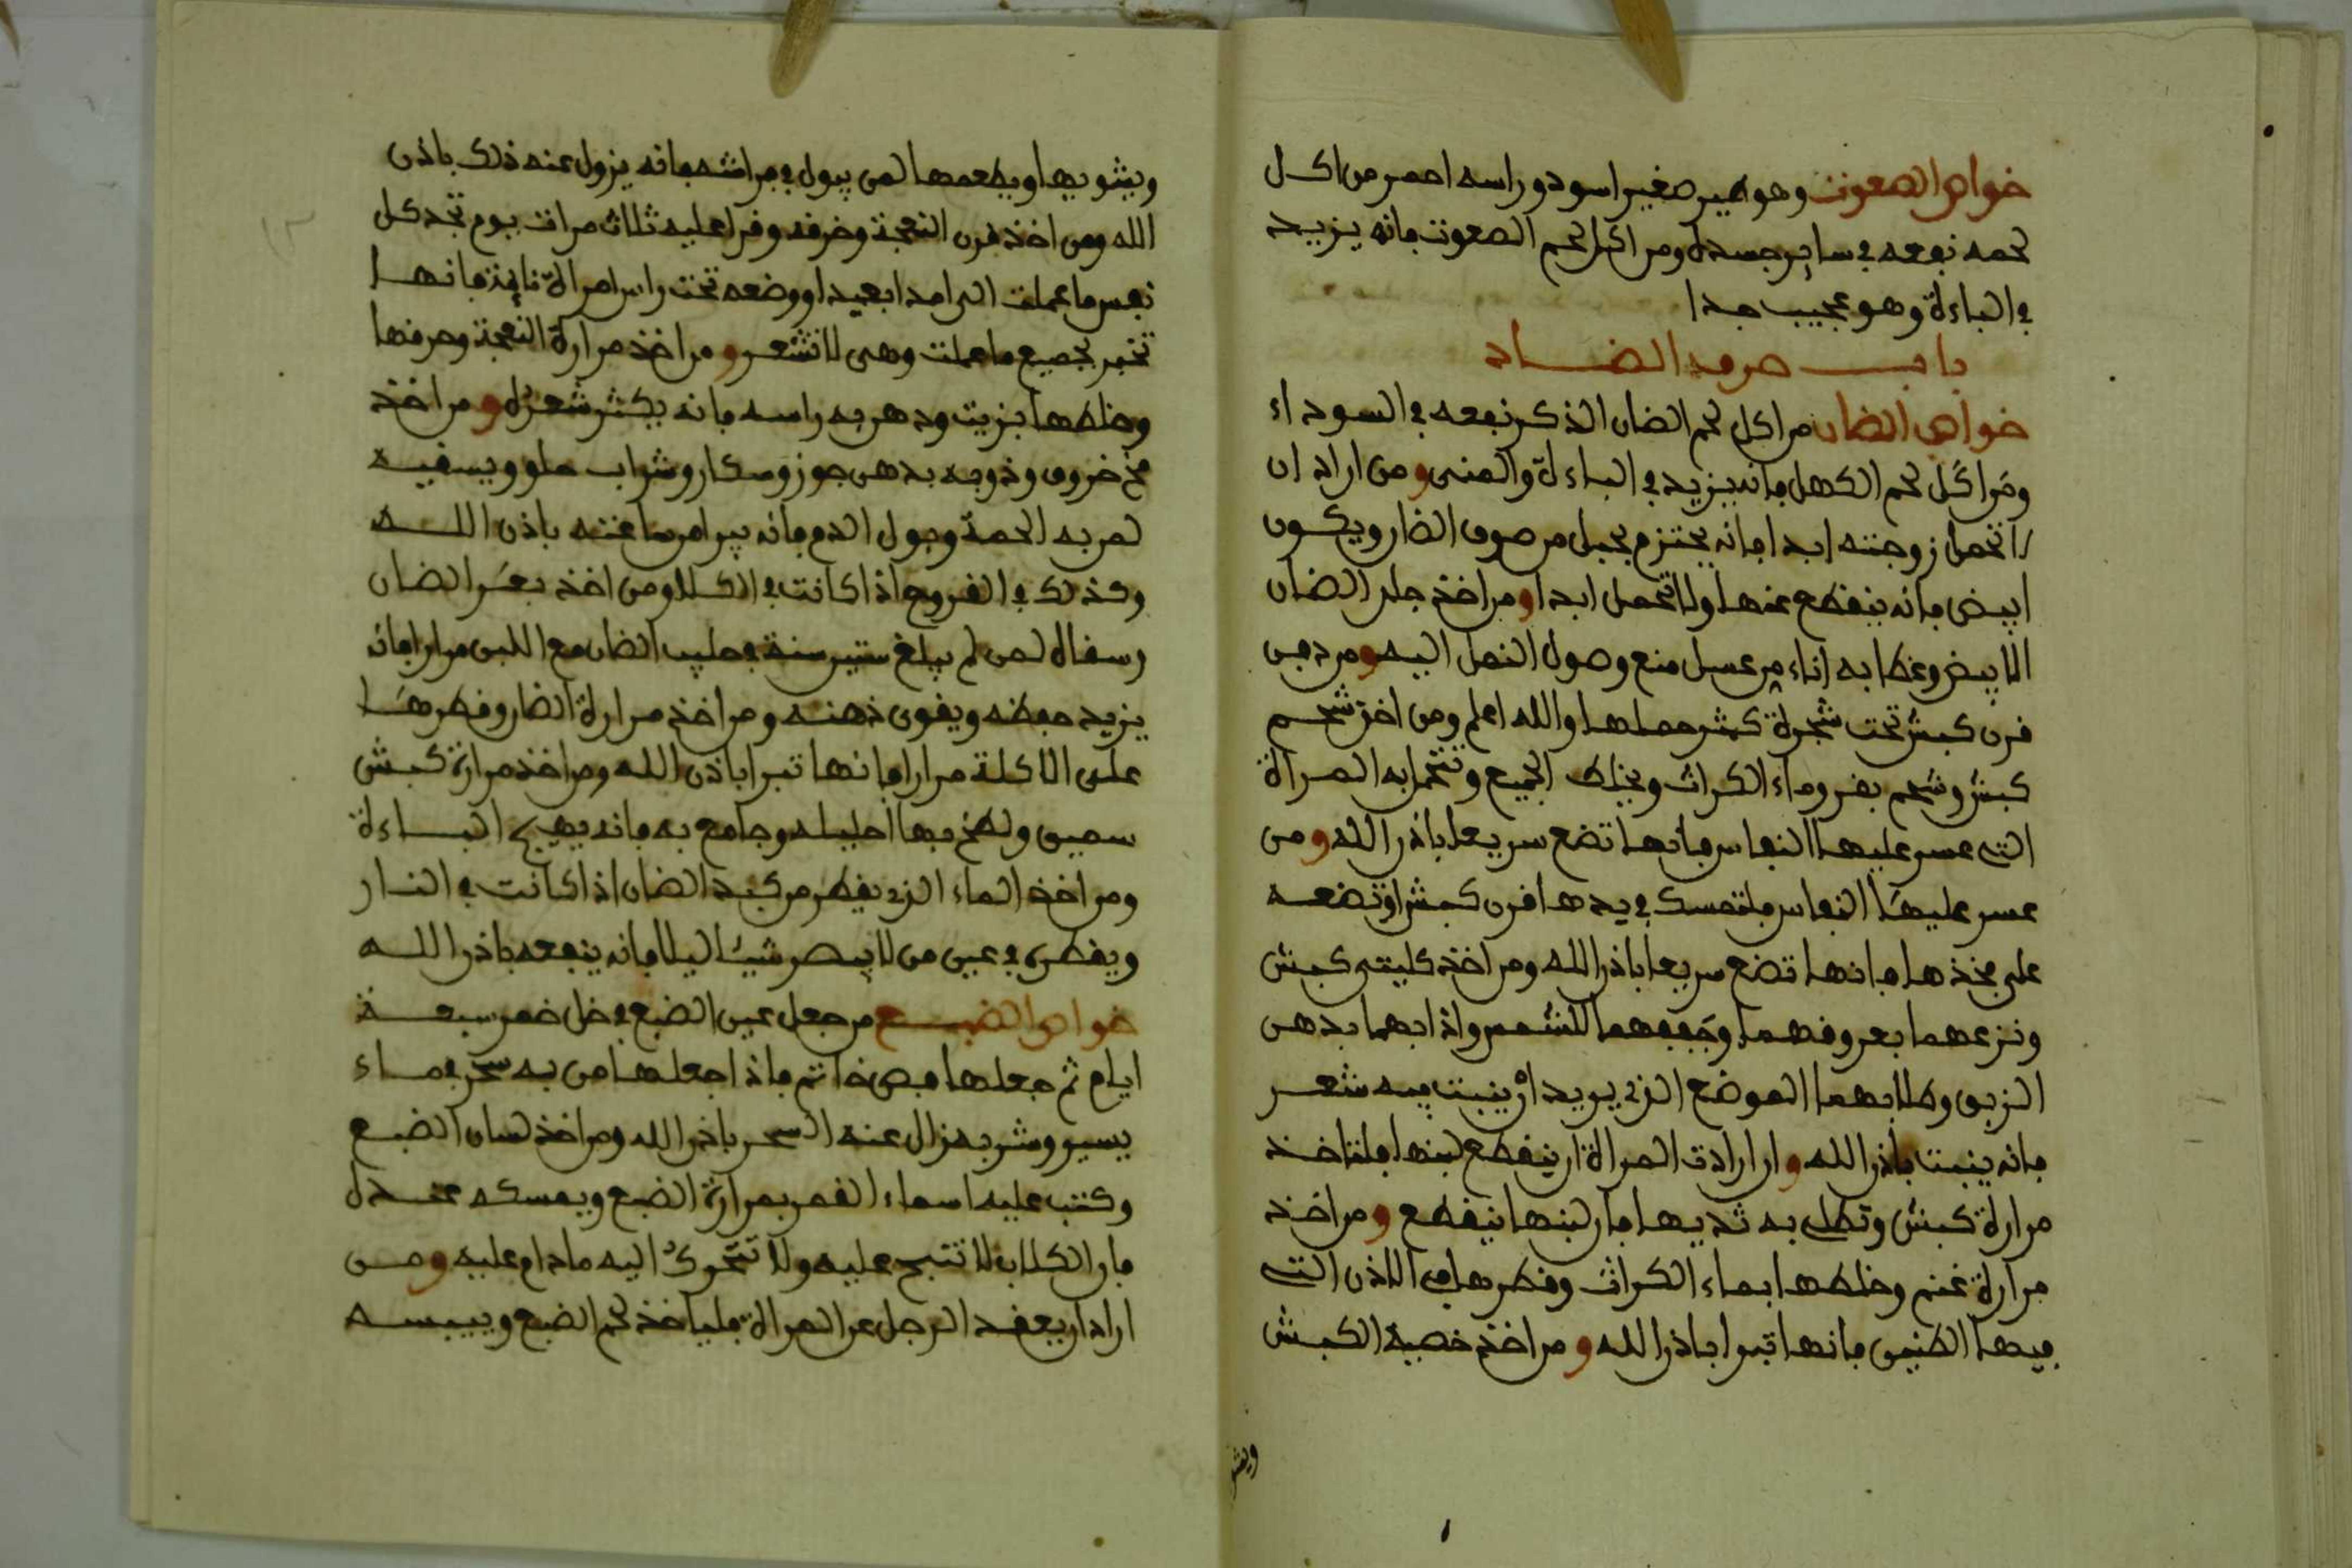 خواص الصعوت وهو طير صغير اسود وراسه احمر من اكل
لحمه نفعه في ساير جسده ومن اكل لحم الصعوت فانه يزيد
في الباءة وهو عجيب جدا
باب حرف الضاد
خواص الضان من اكل لحم الضان الذكر نفعه في السوداء
ومن اكل لحم الكهل فانه يزيد في الباءة والمنى ومن اراد ان
لا تحمل زوجته ابدا فانه يحتزم بحبل من صوف الضان ويكون
ابيض فانه ينقطع عنها ولا تحمل ابدا ومن اخذ جلد الضان
الابيض وغطا به اناء من عسل منع وصول النمل اليه ومن دفن
قرن كبش تحت شجرة كثر حملها والله اعلم ومن اخذ شحم
كبش وشحم بقر وماء الكراث ويخلط الجميع وتتحمل به المراة
التي عسر عليها النفاس فانها تضع سريعا باذن الله ومن
عسر عليها النفاس فلتمسك في يدها قرن كبش او تضعه
على فخذها فانها تضع سريعا باذن الله ومن اخذ كليتي كبش
ونزعهما بعروقهما وجففهما للشمس واذابهما بدهن
الزبق وطلا بهما الموضع الذي يريد ان ينبت فيه شعر
فانه ينبت باذن الله وان ارادت المراة ان ينقطع لبنها فلتاخذ
مرارة كبش وتطلي به ثديها فان لبنها ينقطع ومن اخذ
مرارة غنم وخلطها بماء الكراث وقطرها في الاذن التي
فيها الطنين فانها تبرا باذن الله ومن اخذ خصية الكبش
ويشو
ويشويها ويطعمها لمن يبول في فراشه فانه يزول عنه ذلك باذن
الله ومن اخذ قرن النعجة وخرقه وقرا عليه ثلاث مرات يوم تجد كل
نفس ما عملت الى امدا بعيدا ووضعه تحت راس امراة نايمة فانها
تخبر بجميع ما عملت وهى لا تشعر ومن اخذ مرارة النعجة وحرقها
وخلطها بزيت ودهن به راسه فانه يكثر شعره ومن اخذ
مخ خروف وذوبه بدهن جوز وسكار وشراب حلو ويسقيه
لمن به الحمة وبول الدم فانه يبرا من ساعته باذن الله
وكذلك في القروح اذا كانت في الكلا ومن اخذ بعر الضان
وسقاه لمن لم يبلغ ستين سنة في حليب الضان مع اللبن مرارا فانه
يزيد حفظه ويقوى ذهنه ومن اخذ مرارة الضان وقطرها
على الاكلة مرارا فانها تبرا باذن الله ومن اخذ مرارة كبش
سمين ولطخ بها احليله وجامع به فانه يهيج الباءة
ومن اخذ الماء الذي يقطر من كبد الضان اذا كانت في النار
ويقطره في عين من لا يبصر شيئا ليلا فانه ينفعه باذن الله
خواص الضبع من جعل عين الضبع في خل خمر سبعة
ايام ثم جعلها فص خاتم فاذا جعلها من به سحر في ماء
يسير وشربه زال عنه السحر باذن الله ومن اخذ لسان الضبع
وكتب عليه اسماء القمر بمرارة الضبع ويمسكه عنده
فان الكلاب لا تنبح عليه ولا تتحرك اليه ما دام عليه ومن
اراد ان يعقد الرجل عن المراة فلياخذ لحم الضبع وييبسه